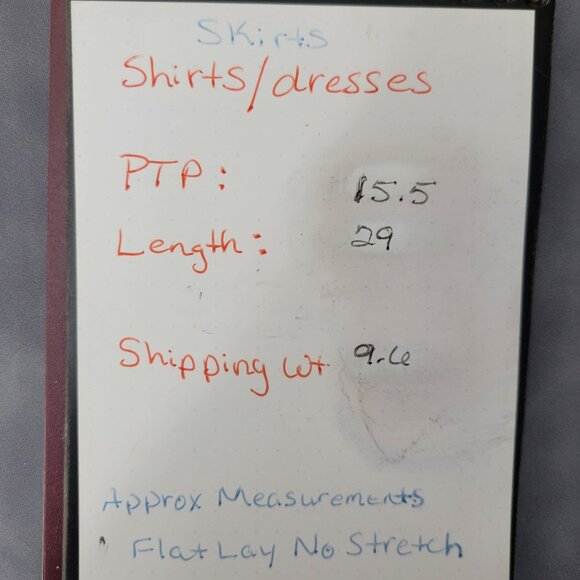 Skirts
Shirts/dresses
PTP: 15.5
Length: 29
Shipping wt 9.6
Approx Measurements
Flat Lay No Stretch